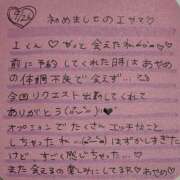 2/26
初めましてのIサマ♡
Iくん♡やっと会えたね(^o^)♡
前に予約してくれた時はあやめ
の体調不良で会えず…💦
今回リクエスト出勤してくれて
ありがとう(^o^)♡
オプションでたくさんエッチなこと
しちゃったね(*^^*)はずかしすぎた
けど、すごく感じちゃった…♡
また会えるの楽しみにしてるネ♡あやめ♡